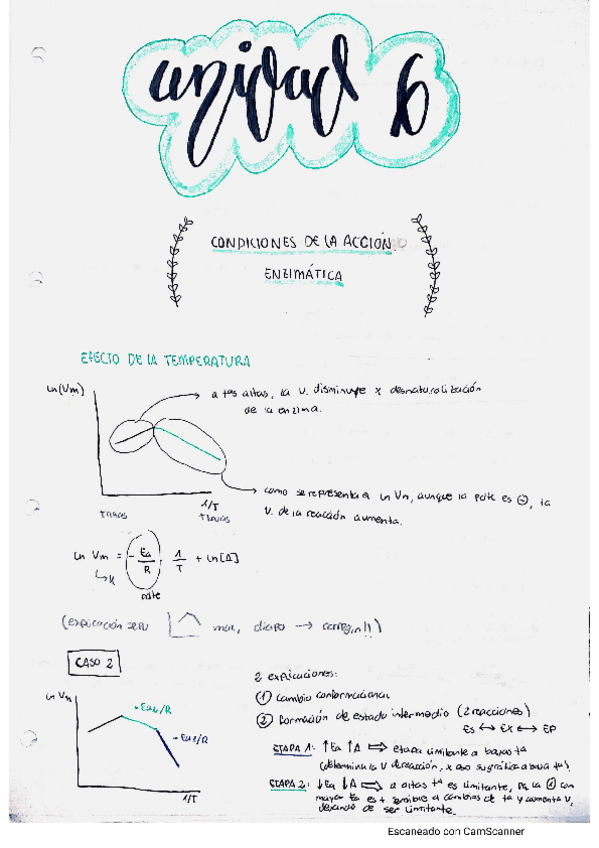 unidad 6
CONDICIONES DE LA ACCIÓN
ENZIMÁTICA
EFECTO DE LA TEMPERATURA
Ln(Vm)
a tas altas, la v. disminuye x desnaturalización
de la enzima.
como se representa en Ln Vm, aunque la pdte es ⊖, la
v. de la reacción aumenta.
1/T
Ln Vm = - Ea/R · 1/T + Ln[A]
↳ K
pdte
(explicación mal, → corregir!!)
CASO 2
Ln Vm
- Ea2/R
- Ea1/R
1/T
2 explicaciones:
① cambio conformacional
② formación de estado intermedio (2 reacciones)
ES ↔ EX ↔ EP
ETAPA 1: ↑Ea ↑A ⇒ etapa limitante a bajas tª
(determina la v de reacción, x eso su gráfica a baja tª)
ETAPA 2: ↓Ea ↓A ⇒ a altas tª es limitante, pq la ① con
mayor Ea es + sensible a cambios de tª y aumenta v,
dejando de ser limitante.
Escaneado con CamScanner